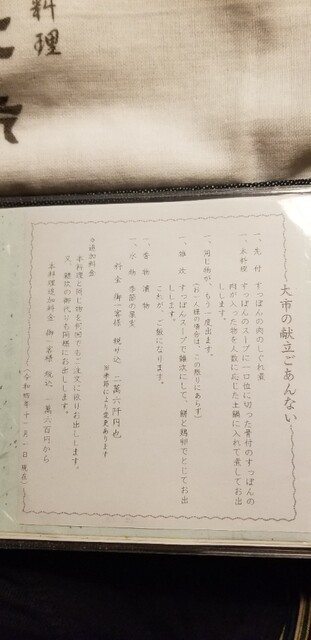 料理
大市の献立ごあんない
一、先付 すっぽんの肉のしぐれ煮
一、本料理 すっぽんのスープに一口位に切った骨付のすっぽんの
肉が入った物を人数に応じした土鍋に入れて煮してお出
しします。
一、同じ物が、もう一度出ます。
(お一人様の場合は、この限りにあらず)
一、雑炊 すっぽんスープで雑炊にして、餅と鶏卵でとじてお出
しします。
これが、ご飯になります。
一、香物 漬物
一、水物 季節の果実
料金 御一客様 税サ込 二萬六阡円也
※季節により変更あります
◎追加料金
本料理と同じ物を何列でもご注文に依りお出しします。
又、雑炊の御代りも同様にお出しします。
本料理追加料金 御一客様 税込 一萬六百円から
(令和四年十一月一日現在)